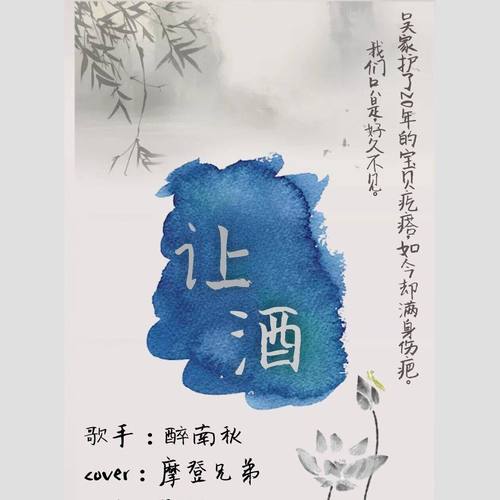 吴家护了20年的宝贝疙瘩。如今却满身伤疤。
我们只是好久不见。
让
酒
歌手：醉南秋
cover：摩登兄弟